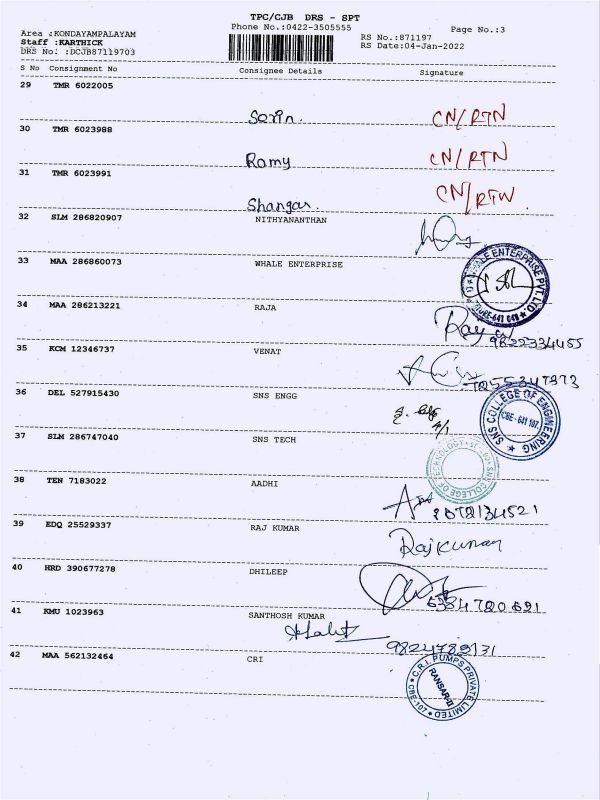 TPC/CJB DRS - SPT
Area :KONDAYAMPALAYAM Phone No.:0422-3505555 Page No.:3
Staff :KARTHICK RS No.:871197
DRS No: :DCJB87119703 RS Date:04-Jan-2022
S No Consignment No Consignee Details Signature
29 TMR 6022005
CN/RTN
30 TMR 6023988
Ramy CN/RTN
31 TMR 6023991
Shangar CN/RTN
32 SLM 286820907 NITHYANANTHAN
33 MAA 286860073 WHALE ENTERPRISE
WHALE ENTERPRISE PVT. LTD
34 MAA 286213221 RAJA
9822334455
35 KCM 12346737 VENAT
36 DEL 527915430 SNS ENGG
SNS COLLEGE OF ENGINEERING
CBE - 641 107
37 SLM 286747040 SNS TECH
SNS COLLEGE OF TECHNOLOGY
38 TEN 7183022 AADHI
39 EDQ 25529337 RAJ KUMAR
Rajkumar
40 HRD 390677278 DHILEEP
41 KMU 1023963 SANTHOSH KUMAR
42 MAA 562132464 CRI
C.R.I. PUMPS PRIVATE LIMITED
CBE-107